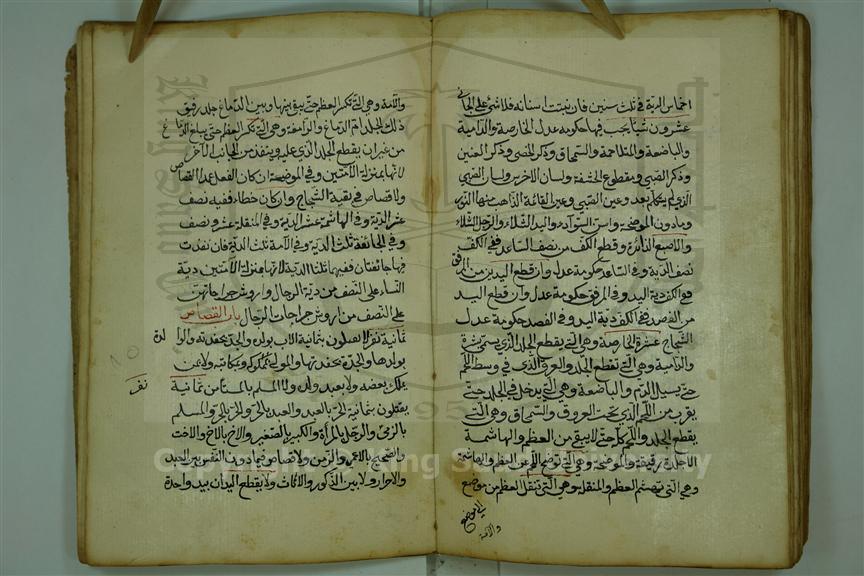 اخماس الدية في ثلث سنين فان نبتت اسنانه فلا شئ على الجاني
عشرون شيئا يجب فيها حكومة عدل الخارصة والدامية
والباضعة والمتلاحمة والسمحاق وذكر الخنثى وذكر العنين
وذكر الصبي ومقطوع الحشفة ولسان الاخرس ولسان الصبي
الذي لم يتكلم بعد وعين الصبي وعين القائمة الذاهب منها النور
ومادون الموضحة والسن السوداء واليد الشلاء والرجل الشلاء
والاصبع الزائرة وقطع الكف من نصف الساعد ففي الكف
نصف الدية وفي الساعد حكومة عدل وان قطع اليد من المرفق
ففي الكف دية اليد وفي المرفق حكومة عدل وان قطع اليد
من العضد ففي الكف دية اليد وفي العضد حكومة عدل
الشجاج عشرة الخارصة وهي التي يقطع الجلد الذي يسمى
والدامية وهي التي تقطع الجلد والعرق الذي في وسط اللحم
حتى يسيل الدم والباضعة وهي التي يدخل في الجلد حتى
يقرب من اللحم الذي تحت العروق والسمحاق وهي التي
يقطع الجلد واللحم كله حتى لا يبقى من العظم والهاشمة
الا جلدة رقيقة والموضحة وهي التي توضح اللحم عن العظم والهاشمة
وهي التي تهشم العظم والمنقلة وهي التي تنقل العظم من موضع
الى موضع
والآمة
والآمة وهي التي تكسر العظم حتى يبقى بينها وبين الدماغ جلد رقيق
ذلك الجلد ام الدماغ والدامغة وهي التي تكسر العظم حتى يبلغ الدماغ
من غير ان يقطع الجلد الذي عليه وينفذ من الجانب الآخر
لانها بمنزلة الآمتين وفي الموضحة ان كان الفعل عمدا القصاص
ولا قصاص في بقية الشجاج وان كان خطاء ففيه نصف
عشر الدية وفي الهاشمة عشر الدية وفي المنقلة عشر ونصف
وفي الجائفة ثلث الدية وفي الآمة ثلث الدية فان نفذت
فهما جائفتان ففيهما ثلثا الدية لانها بمنزلة الآمتين دية
النساء على النصف من دية الرجال واروش جراحاتهن
على النصف من اروش جراحات الرجال باب القصاص
ثمانية نفر لا يقتلون بثمانية الاب بولده والجد بحفدته والوالدة
بولدها والجدة بحفدتها والمولى بمملوكه ومكاتبه ولا عن
يملك بعضه ولا بعبد ولده ولا المسلم بالمستأمن ثمانية نفر
يقتلون بثمانية الحر بالعبد والعبد بالحر والحر بالحر والمسلم
بالذمي والرجل بالمرأة والكبير بالصغير والاخ بالاخ والاخت
والصحيح بالاعمى والزمن ولا قصاص فيما دون النفس بين العبيد
والاحرار ولا بين الذكور والاناث ولا يقطع اليدان بيد واحدة
10
Copyright © King Saud University
1957